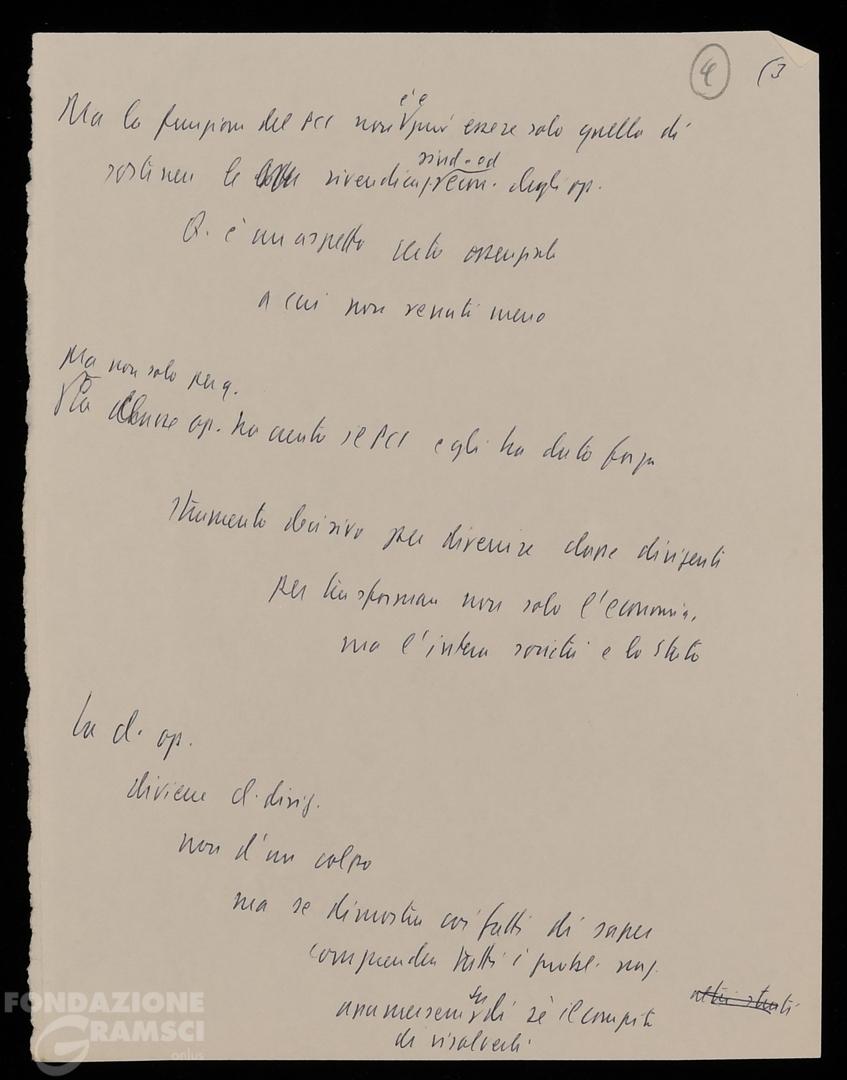 4 (3
c'è
Ma la funzione del PCI non può essere solo quella di
sind. ed
sostenere le rivendicaz. econ. degli op.
Q. è un aspetto certo essenziale
a cui non venuti meno
Ma non solo per q.
La classe op. ha creato il PCI e gli ha dato forza
strumento decisivo per divenire classe dirigente
per trasformare non solo l'economia,
ma l'intera società e lo Stato
La cl. op.
diviene cl. dirig.
non d'un colpo
ma se dimostra coi fatti di saper
comprendere tutti i probl. naz.
assumersene su di sé il compito
di risolverli
altri strati
FONDAZIONE
GRAMSCI
onlus